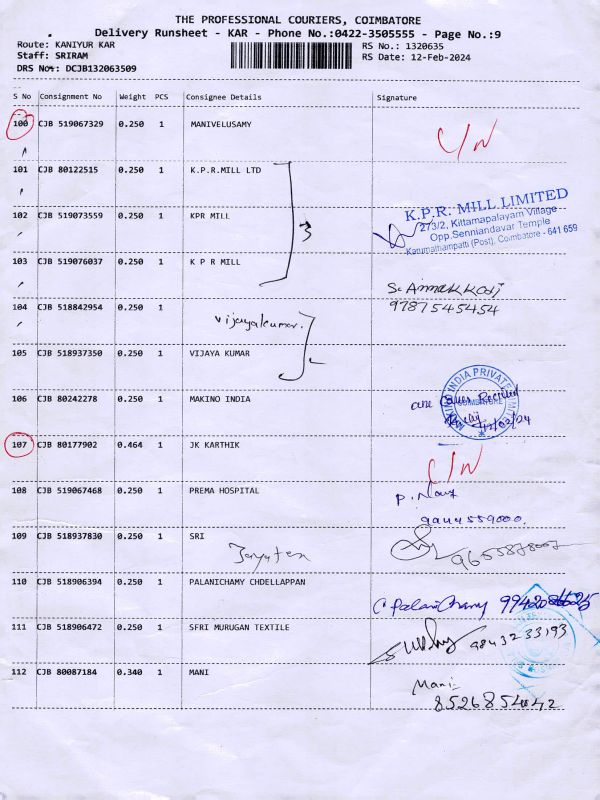 THE PROFESSIONAL COURIERS, COIMBATORE
Delivery Runsheet - KAR - Phone No.:0422-3505555 - Page No.:9
Route: KANIYUR KAR RS No.: 1320635
Staff: SRIRAM RS Date: 12-Feb-2024
DRS No.: DCJB132063509
S No Consignment No Weight PCS Consignee Details Signature
100 CJB 519067329 0.250 1 MANIVELUSAMY C/N
101 CJB 80122515 0.250 1 K.P.R.MILL LTD
K.P.R. MILL LIMITED
102 CJB 519073559 0.250 1 KPR MILL 3
273/2, Kittampalayam Village
Opp.Senniandavar Temple
Karumathampatti (Post), Coimbatore - 641 659
103 CJB 519076037 0.250 1 K P R MILL
104 CJB 518842954 0.250 1 9787545454
vijayakumar.
105 CJB 518937350 0.250 1 VIJAYA KUMAR
106 CJB 80242278 0.250 1 MAKINO INDIA
MAKINO INDIA PRIVATE LIMITED
COIMBATORE
one Received
12/02/24
107 CJB 80177902 0.464 1 JK KARTHIK C/N
108 CJB 519067468 0.250 1 PREMA HOSPITAL P.
109 CJB 518937830 0.250 1 SRI
110 CJB 518906394 0.250 1 PALANICHAMY CHDELLAPPAN
111 CJB 518906472 0.250 1 SFRI MURUGAN TEXTILE 9843233193
112 CJB 80087184 0.340 1 MANI Mani